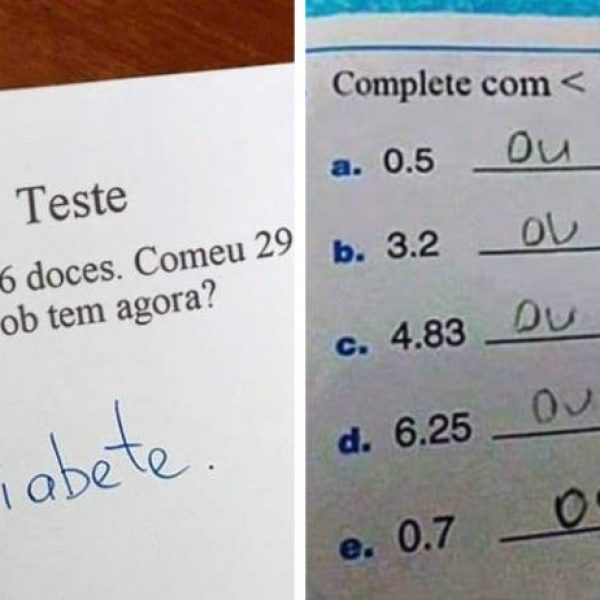 Teste
6 doces. Comeu 29
ob tem agora?
iabete.
Complete com <
a. 0.5 ou
b. 3.2 ou
c. 4.83 ou
d. 6.25 ou
e. 0.7 o